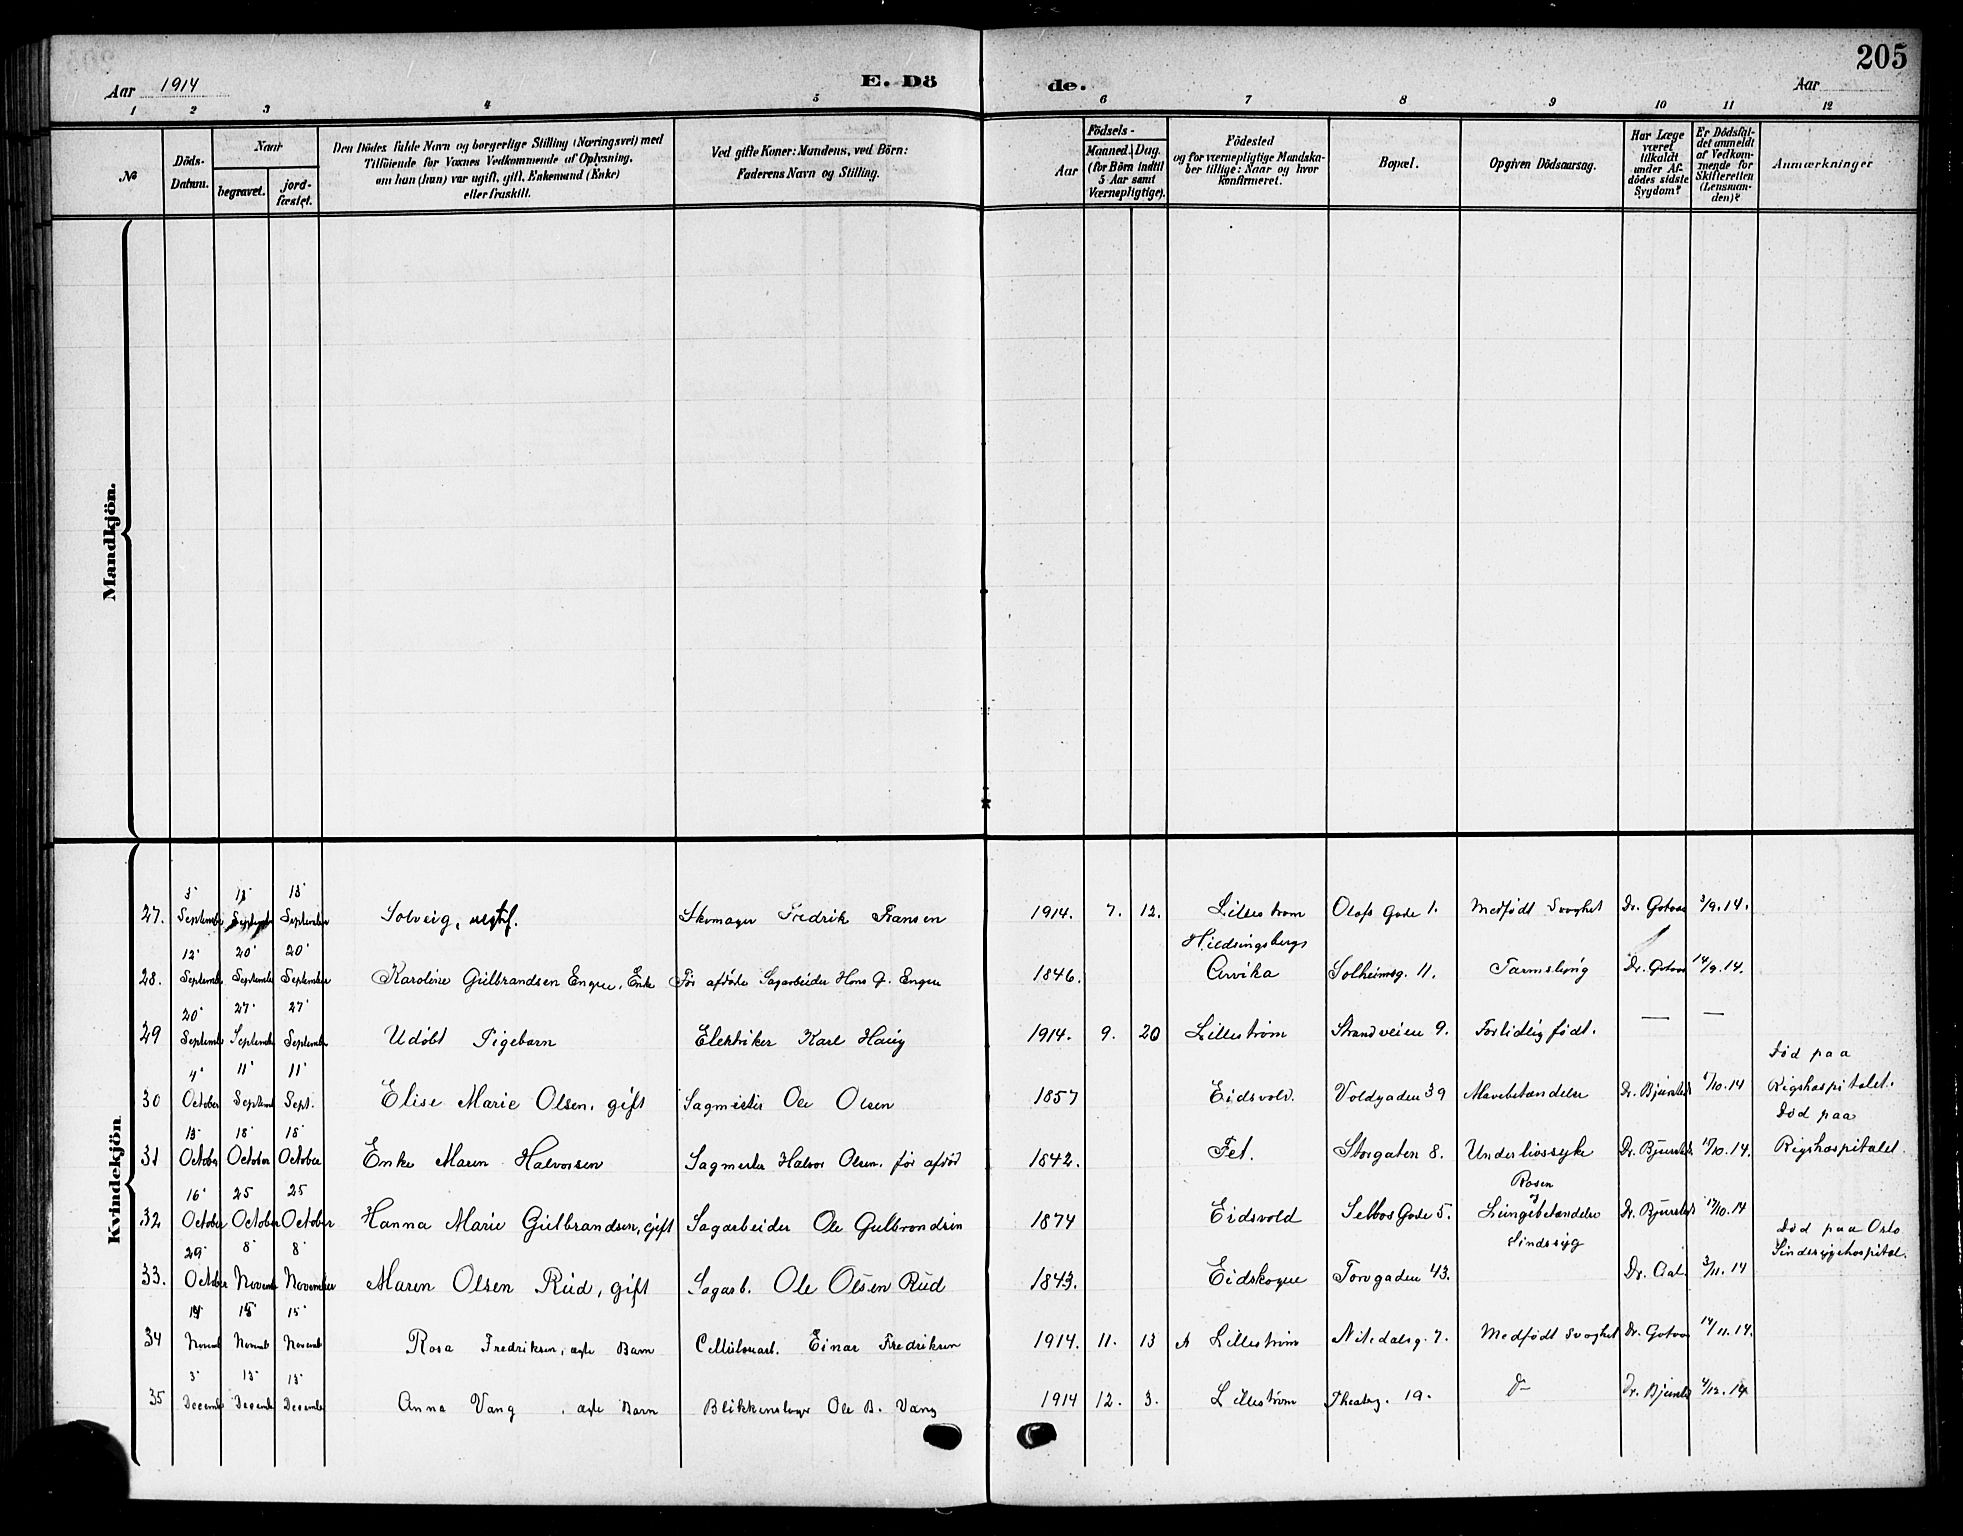 205
Aar 1914
E. Dö
de.
Aar
1 2 3 4 5 6 7 8 9 10 11 12
№
Döds-
Datum.
Naar
begravet.
jord-
fæstet.
Den Dödes fulde Navn og borgerlige Stilling (Næringsvei) med
Tilföiende for Voxnes Vedkommende af Oplysning,
om han (hun) var ugift, gift, Enkemand (Enke)
eller fraskilt.
Ved gifte Koner: Mandens, ved Börn:
Faderens Navn og Stilling.
Födsels-
Aar
Maaned. Dag.
(for Börn indtil
5 Aar samt
Værnepligtige).
Födested
og for værnepligtige Mandska-
ber tillige: Naar og hvor
konfirmeret.
Bopæl.
Opgiven Dödsaarsag.
Har Læge
været
tilkaldt
under Af-
dödes sidste
Sygdom?
Er Dödsfal-
det anmeldt
af Vedkom-
mende for
Skifteretten
(Lensman-
den)?
Anmærkninger
Mandkjön.
Kvindekjön
27. September September September Solveig, Skomager Fredrik Fransen 1914. 7. 12. Lillestrøm Olafs Gade 1. Medfødt Svaghet Dr. Gotaas 3/9.14.
12 20 20
28. September September September Karoline Gulbrandsen Engue, Enke For afdøde Sagarbeider Hans G. Engue 1846. Arvika Solheimsg. 11. Tarmslyng Dr. Gotaas 14/9.14.
20 27 27
29 September September September Udøbt Pigebarn Elektriker Karl Haug 1914. 9. 20 Lillestrøm Strandveien 9. Fortidlig født. — —
4 11 11 Død paa
30 October Septemb Sept. Elise Marie Olsen, gift Sagmester Ole Olsen 1857 Eidsvold. Voldgaden 39 Mavebetændelse 10.14 Rigshospitalet.
13 18 18 Død paa
31 October October October Enke Maren Halvorsen Sagmester Halvor Olsen, før afdød 1842. Fet. Storgaten 8. Underlivssyke 10.14. Rigshospitalet.
16 25 25 Rosen
32 October October October Hanna Marie Gulbrandsen, gift Sagarbeider Ole Gulbrandsen 1874 Eidsvold Gade 5. Lungebetændelse 10.14 Død paa Oslo
29 8 8 Sindssyg Sindssygehospital.
33. October Novemb November Maren Olsen Rud, gift Sagarb. Ole Olsen Rud 1843. Eidskogue Torvgaden 43. Dr. Aal. 3/11.14
15 15
34 Novemb Novemb Novemb Rosa Fredriksen, ægte Barn Einar Fredriksen 1914. 11. 13 Lillestrøm Nitedalsg. 7. Medfødt Svaghet Dr. Gotaas 14/11.14.
3 13 13
35 Decembe Decembe Decembe Anna Vang, ægte Barn Blikkenslager Ole B. Vang 1914 12. 3. Lillestrøm Theaterg. 19. 4/12.14